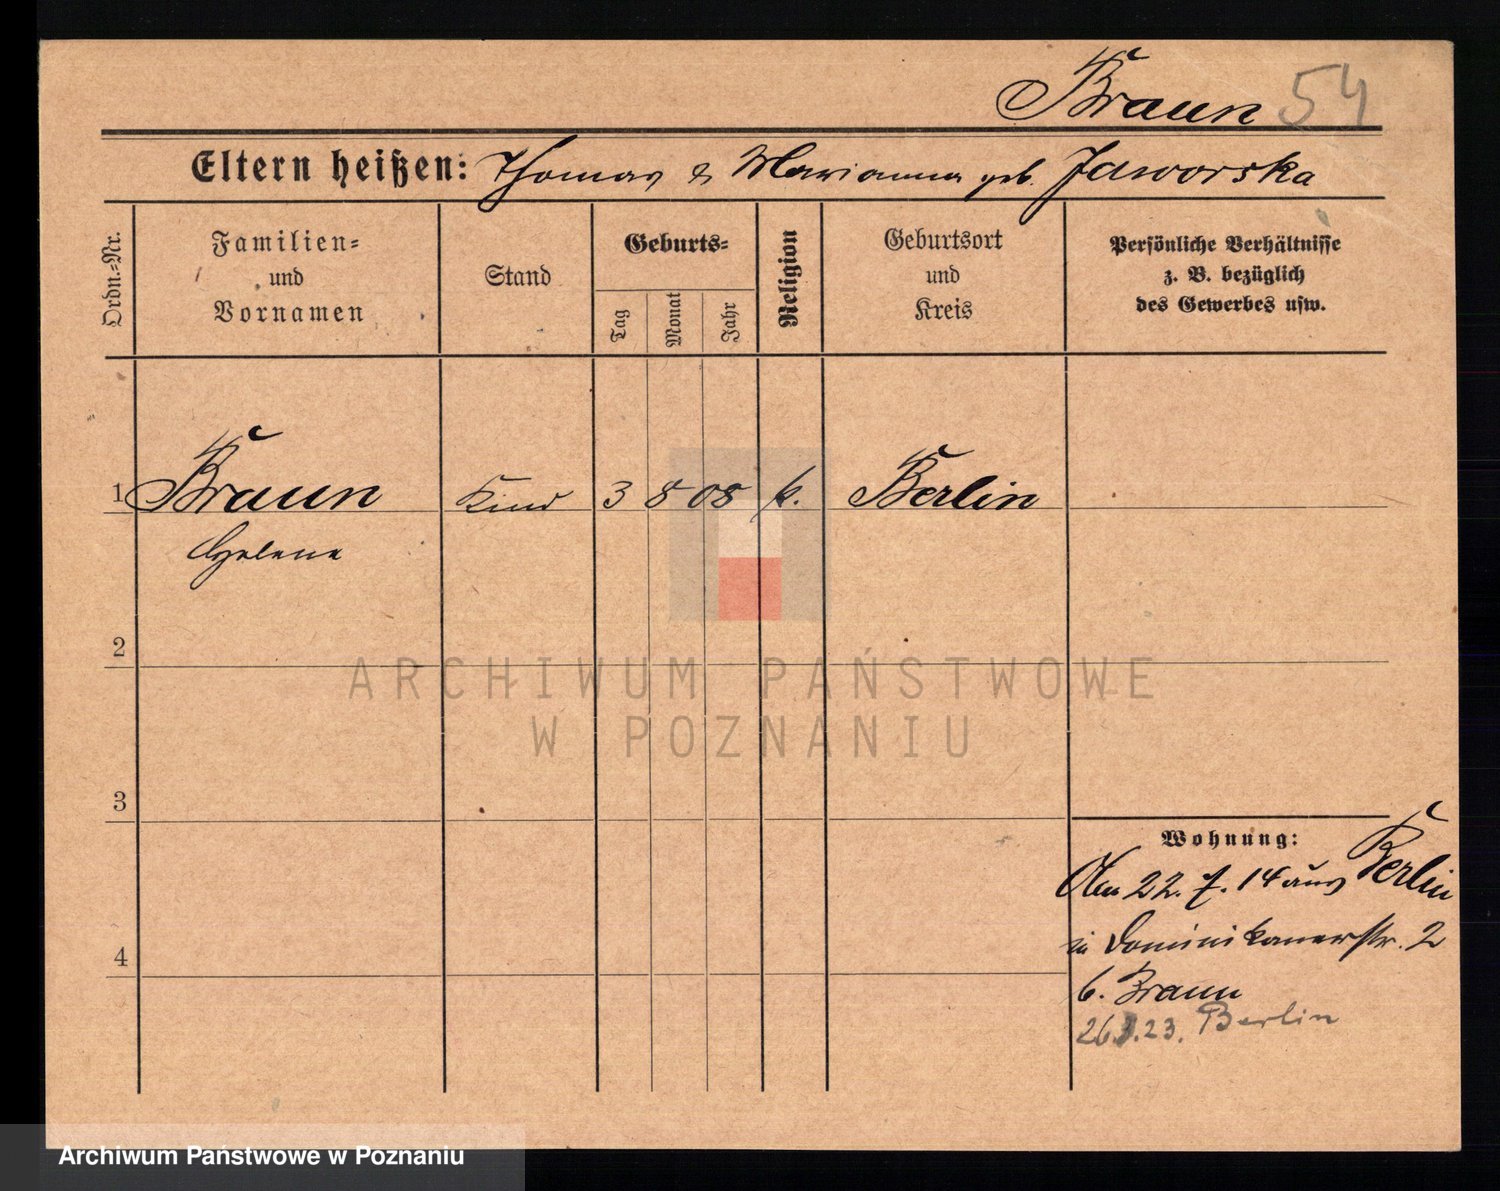 Braun 54
Eltern heißen: Thomas & Marianna geb. Jaworska
Ordn.-Nr.
Familien-
und
Vornamen
Stand
Geburts-
Tag
Monat
Jahr
Religion
Geburtsort
und
Kreis
Persönliche Verhältnisse
z. B. bezüglich
des Gewerbes usw.
1 Braun Kind 3 8 08 k. Berlin
Helene
2
ARCHIWUM PAŃSTWOWE
W POZNANIU
3
Wohnung:
Am 22. 7. 14 aus Berlin
in Dominikanerstr. 2
4
b. Braun
26.3.23. Berlin
Archiwum Państwowe w Poznaniu